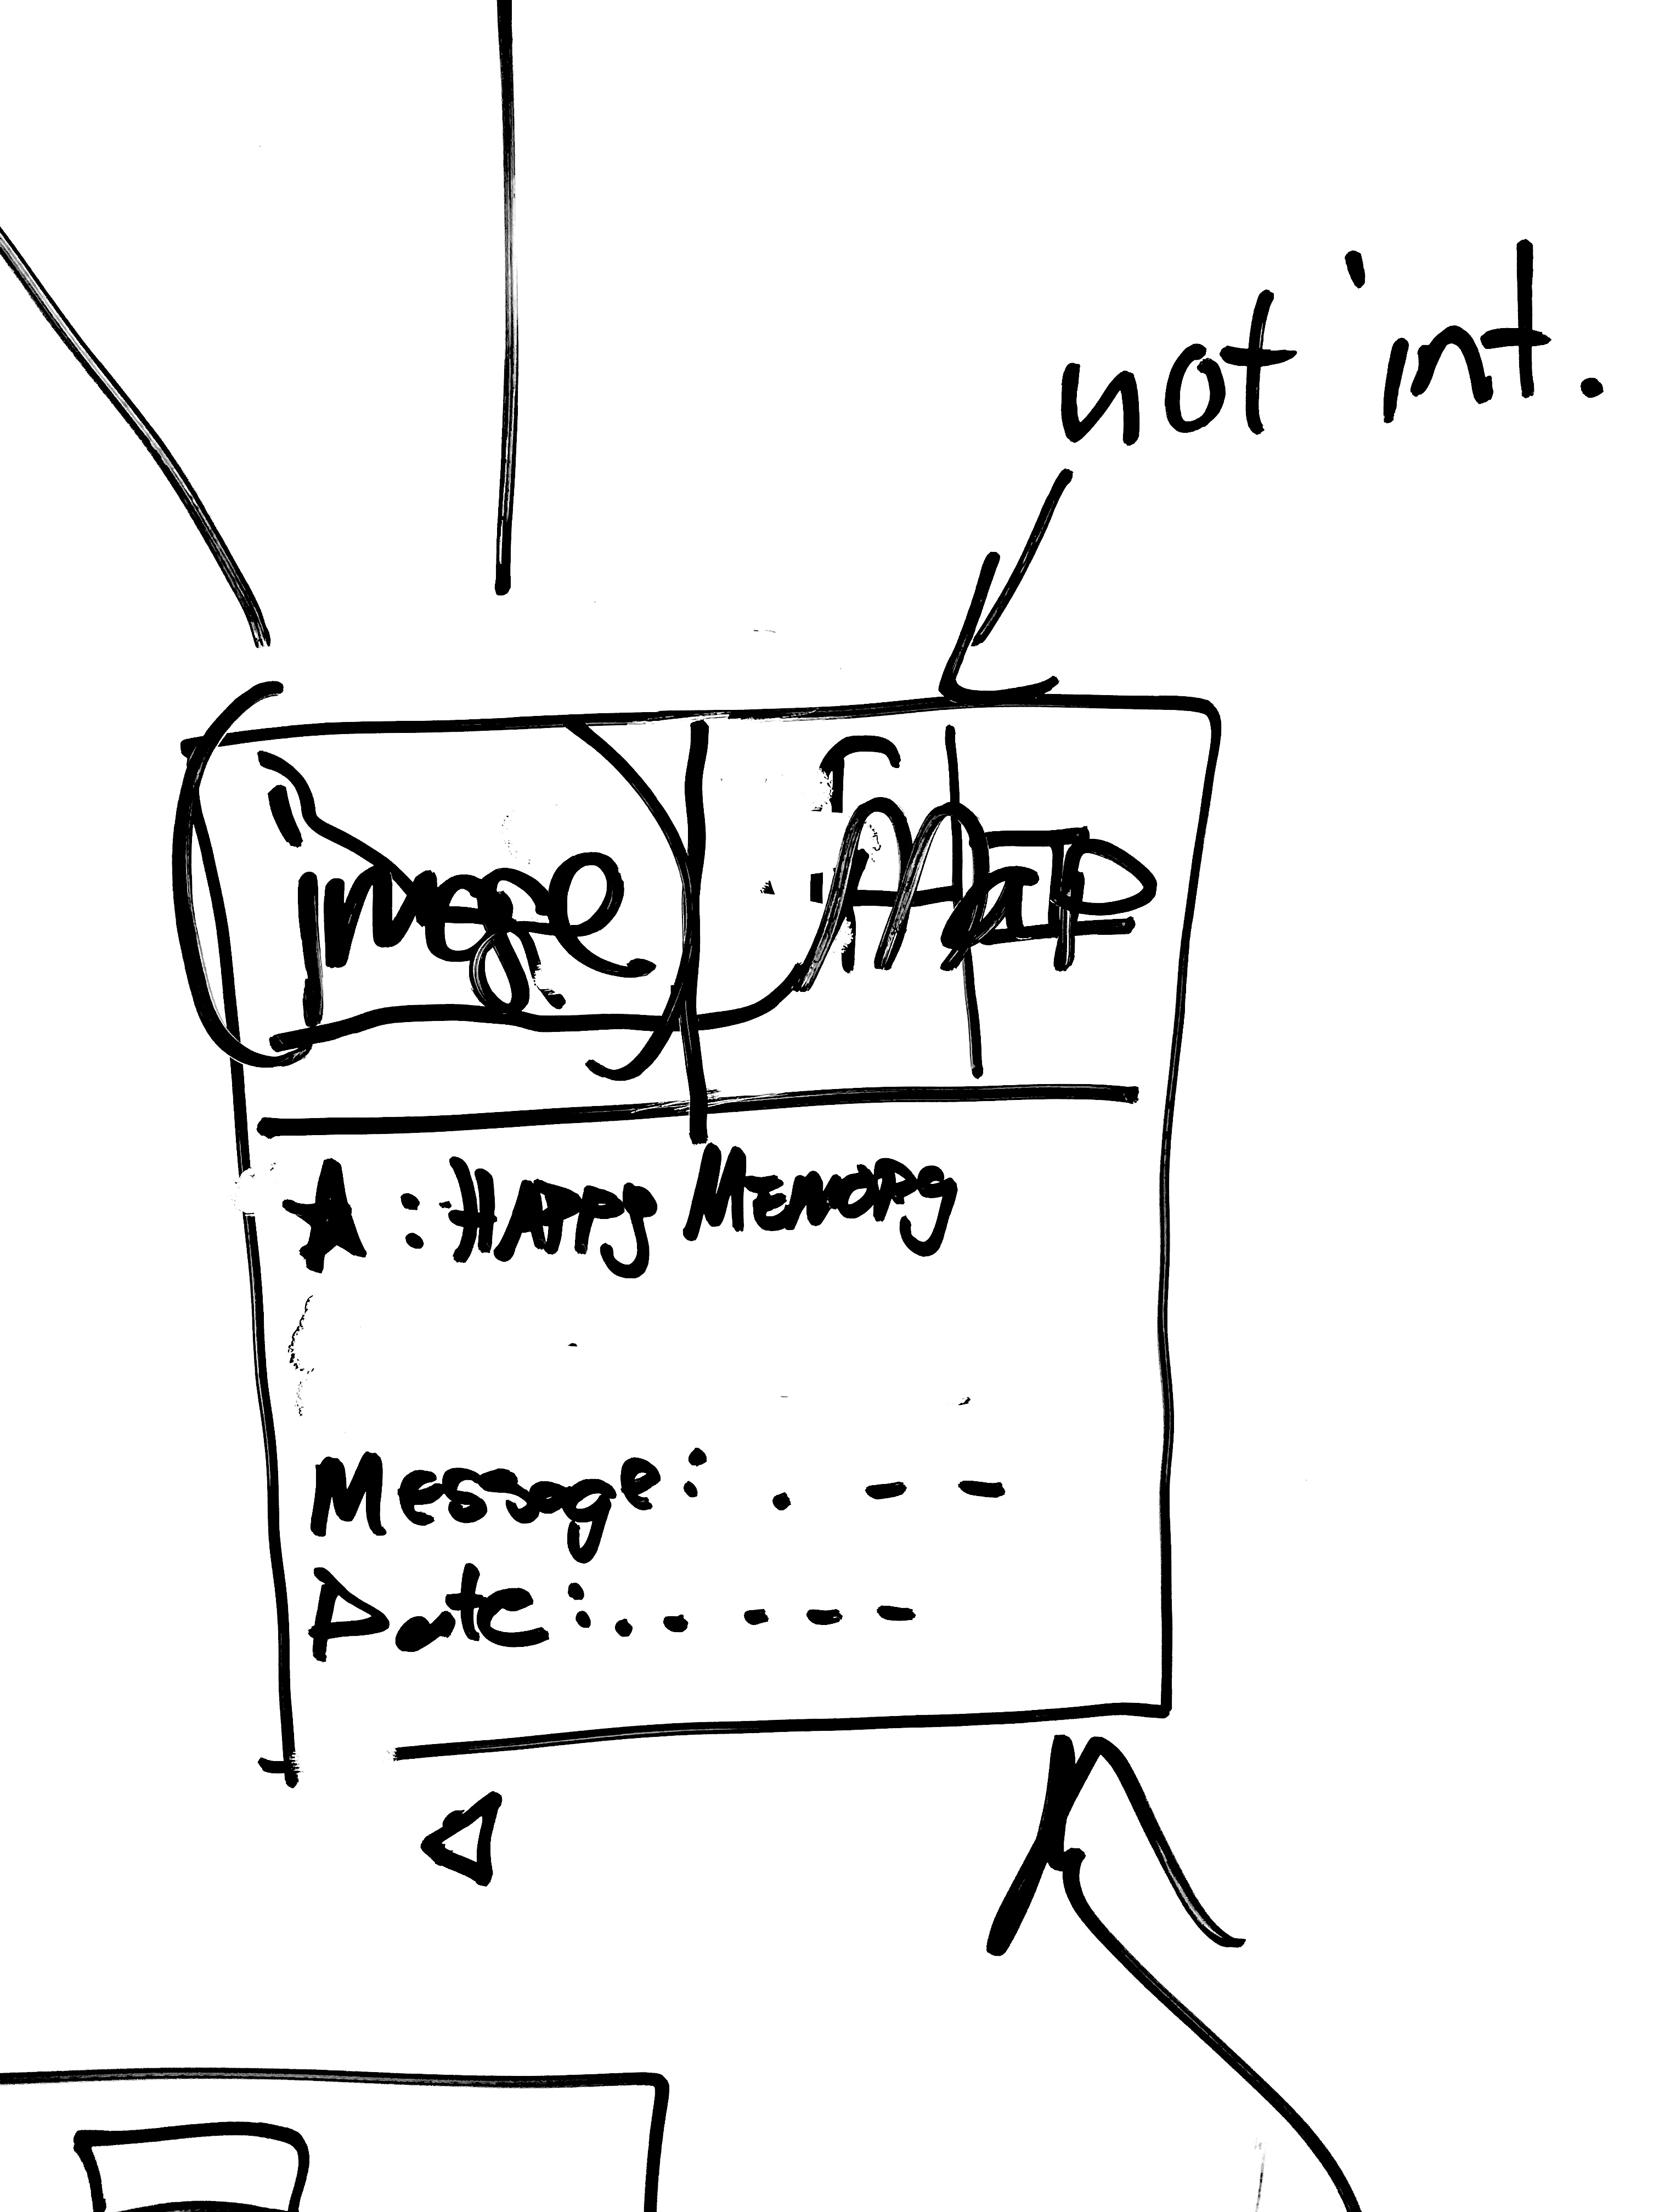 not int.
image MAP
A : HAPPy MEMORy
Message: . - -
Date: . . - - -